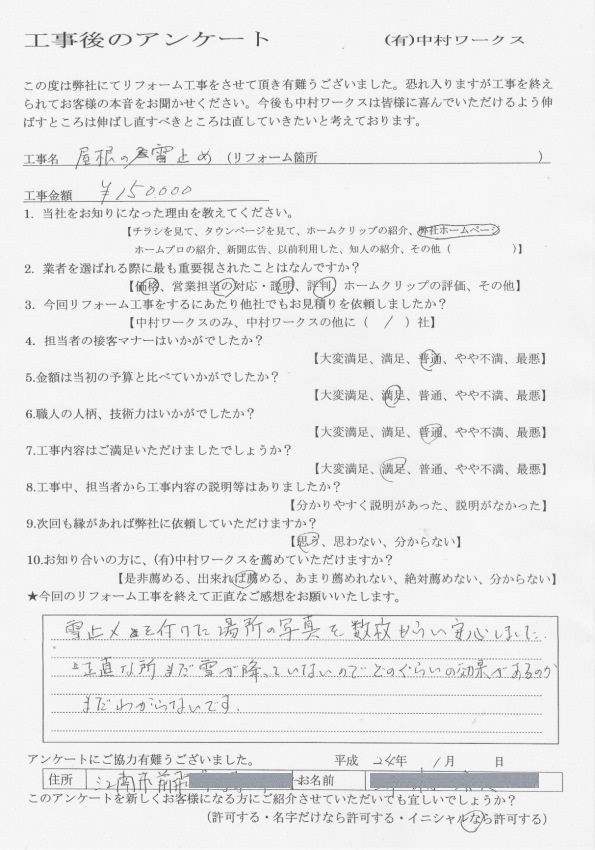 工事後のアンケート　(有)中村ワークス
この度は弊社にてリフォーム工事をさせて頂き有難うございました。恐れ入りますが工事を終え
られてお客様の本音をお聞かせください。今後も中村ワークスは皆様に喜んでいただけるよう伸
ばすところは伸ばし直すべきところは直していきたいと考えております。
工事名　屋根の雪止め　(リフォーム箇所　)
工事金額　¥150000
1. 当社をお知りになった理由を教えてください。
【チラシを見て、タウンページを見て、ホームクリップの紹介、弊社ホームページ
ホームプロの紹介、新聞広告、以前利用した、知人の紹介、その他（　）】
2. 業者を選ばれる際に最も重要視されたことはなんですか？
【価格、営業担当の対応・説明、評判、ホームクリップの評価、その他】
3. 今回リフォーム工事をするにあたり他社でもお見積りを依頼しましたか？
【中村ワークスのみ、中村ワークスの他に（ / ）社】
4. 担当者の接客マナーはいかがでしたか？
【大変満足、満足、普通、やや不満、最悪】
5.金額は当初の予算と比べていかがでしたか？
【大変満足、満足、普通、やや不満、最悪】
6.職人の人柄、技術力はいかがでしたか？
【大変満足、満足、普通、やや不満、最悪】
7.工事内容はご満足いただけましたでしょうか？
【大変満足、満足、普通、やや不満、最悪】
8.工事中、担当者から工事内容の説明等はありましたか？
【分かりやすく説明があった、説明がなかった】
9.次回も縁があれば弊社に依頼していただけますか？
【思う、思わない、分からない】
10.お知り合いの方に、(有)中村ワークスを薦めていただけますか？
【是非薦める、出来れば薦める、あまり薦めれない、絶対薦めない、分からない】
★今回のリフォーム工事を終えて正直なご感想をお願いいたします。
雪止メを付けた場所の写真を数枚もらい安心しました.
正直な所まだ雪が降っていないのでどのぐらいの効果があるのか
まだわからないです.
アンケートにご協力有難うございました。　平成 24年 1月　日
住所　江南市前　お名前
このアンケートを新しくお客様になる方にご紹介させていただいても宜しいでしょうか？
(許可する・名字だけなら許可する・イニシャルなら許可する)